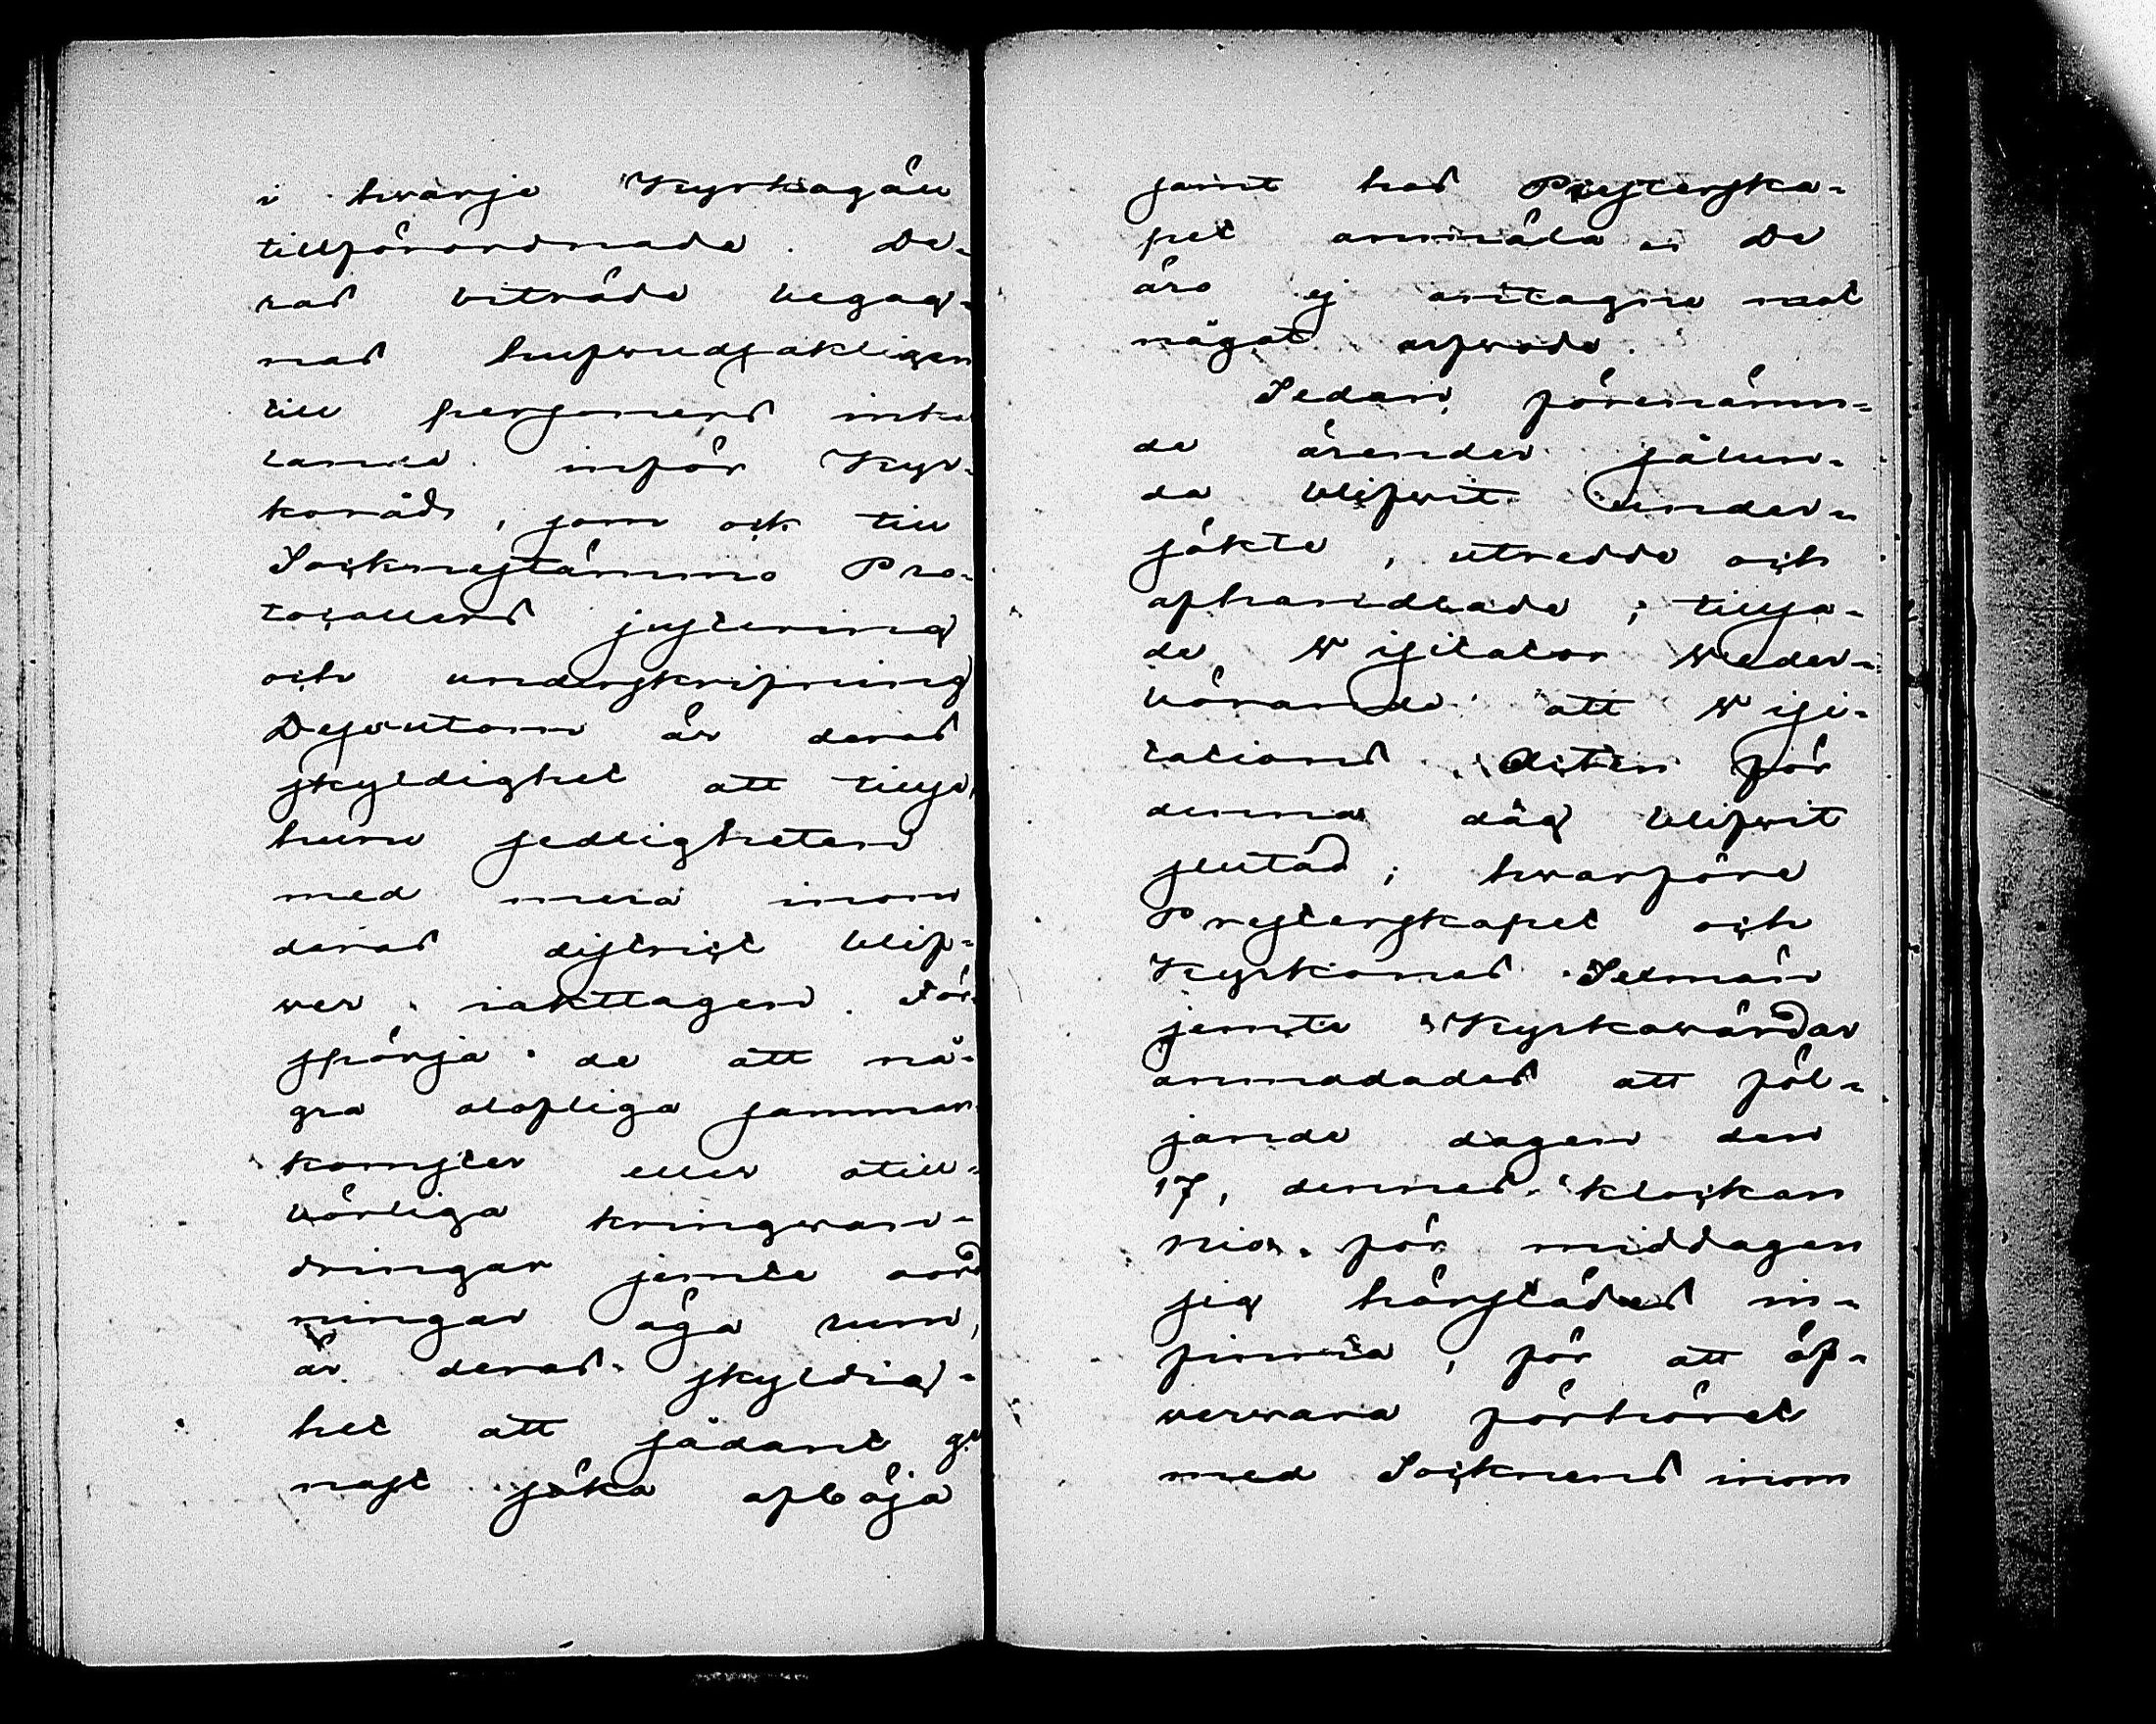 i hwarje Kyrkogäll
tillförordnade. De-
ras biträde begag-
nas hufwudsakligen
till personers inkal
lande inför Kyr-
koråd, som ock till
Sockneståmmo Pro-
tocollers justering
och underskrifning
Desutom är deras
skyldighet att tillse,
huru sedligheten
med mera inom
deras district blif-
wer iakttagen. För-
spörja de att nå-
gra olofliga samman-
komster eller otill-
börliga kringwan-
dringar jemte oord
ningar äga rum,
är deras skyldig-
het att sådant ge
nast söka afböja
samt hos Presterska-
pet anmäla. De
äro ej antagne mot
något arfwode.
Sedan förenämn-
de ärender sålun-
da blifwit under-
sökte, utredde och
afhandlade, tillsa-
de Wisitator weder-
börande att Wisi-
tations Acten för
denna dag blifwit
slutad; hwarföre
Presterskapet och
Kyrkiones Sexmän
jemte Kyrkowärdar
anmodades att föl-
jande dagen den
17, dennes klockan
nio för middagen
sig härstädes in-
finna, för att öf-
werwara förhöret
med Socknens inom